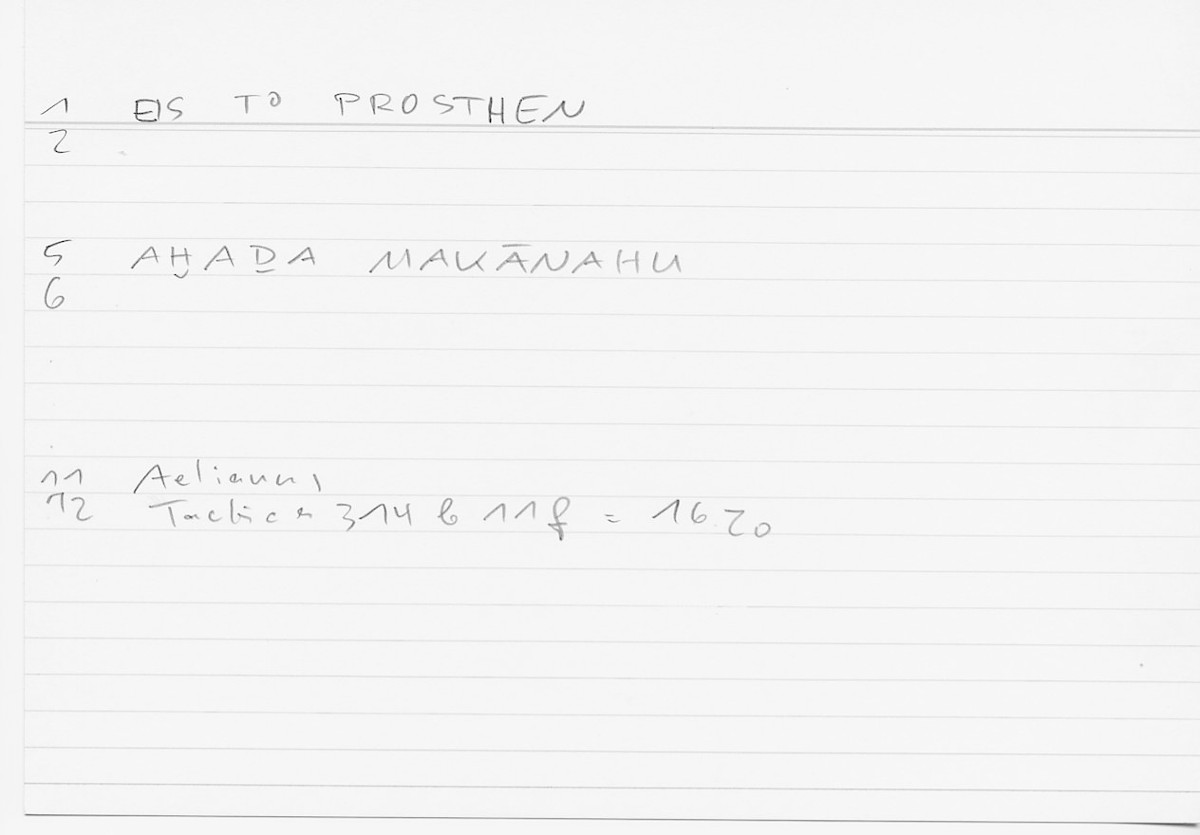 1 EIS TO PROSTHEN
2
5 AḪAḎA MAKĀNAHU
6
11 Aelianus
12 Tactica 314 b 11f = 16.20